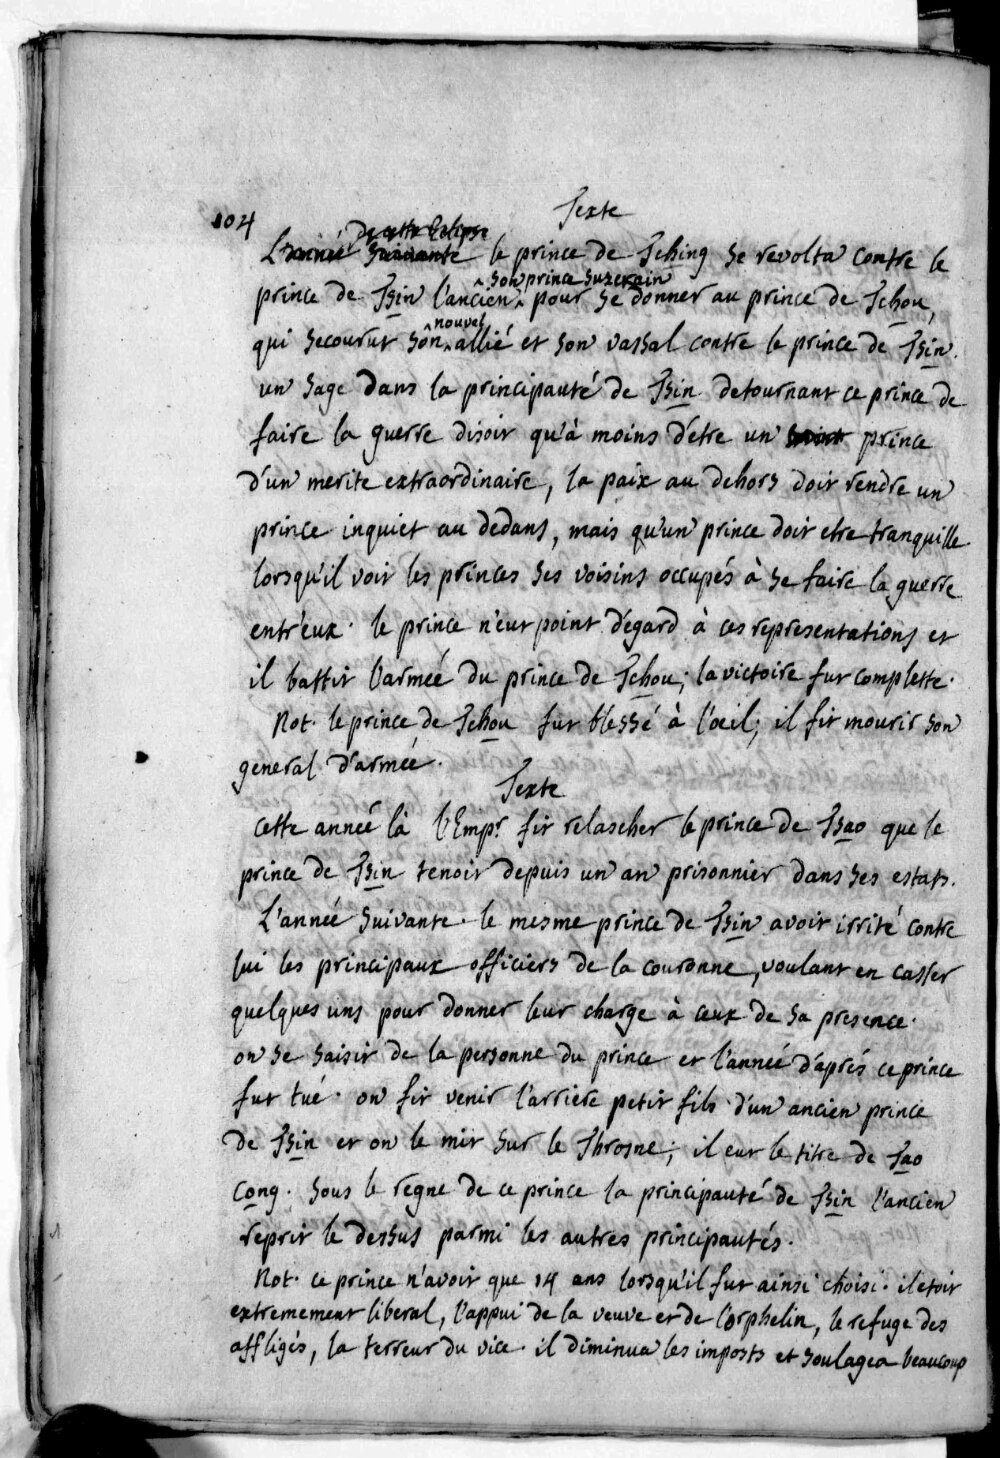 104
Texte
de cette Eclipse
L'année suivante le prince de Tching se revolta contre le
son prince suzerain
prince de Tsin l'ancien, pour se donner au prince de Tchou,
nouvel
qui secourut son allié et son vassal contre le prince de Tsin.
un sage dans la principauté de Tsin detournant ce prince de
faire la guerre disoit qu'à moins d'etre un prince
d'un merite extraordinaire, la paix au dehors doit rendre un
prince inquiet au dedans, mais qu'un prince doit etre tranquille
lorsqu'il voit les princes ses voisins occupés à se faire la guerre
entr'eux. le prince n'eut point d'egard à ces representations et
il battit l'armée du prince de Tchou; la victoire fut complette.
Not. le prince de Tchou fut blessé à l'œil; il fit mourir son
general d'armée.
Texte
cette année là l'Empr. fit relascher le prince de Tsao que le
prince de Tsin tenoit depuis un an prisonnier dans ses estats.
L'année suivante. le mesme prince de Tsin avoit irrité contre
lui les principaux officiers de la couronne, voulant en casser
quelques uns pour donner leur charge à ceux de sa presence.
on se saisit de la personne du prince et l'année d'après ce prince
fut tué. on fit venir l'arriere petit fils d'un ancien prince
de Tsin et on le mit sur le Throsne; il eut le titre de Tao
Cong. sous le regne de ce prince la principauté de Tsin l'ancien
reprit le dessus parmi les autres principautés.
Not. ce prince n'avoit que 14 ans lorsqu'il fut ainsi choisi. il etoit
extremement liberal, l'appui de la veuve et de l'orphelin, le refuge des
affligés, la terreur du vice. il diminua les imposts et soulagea beaucoup